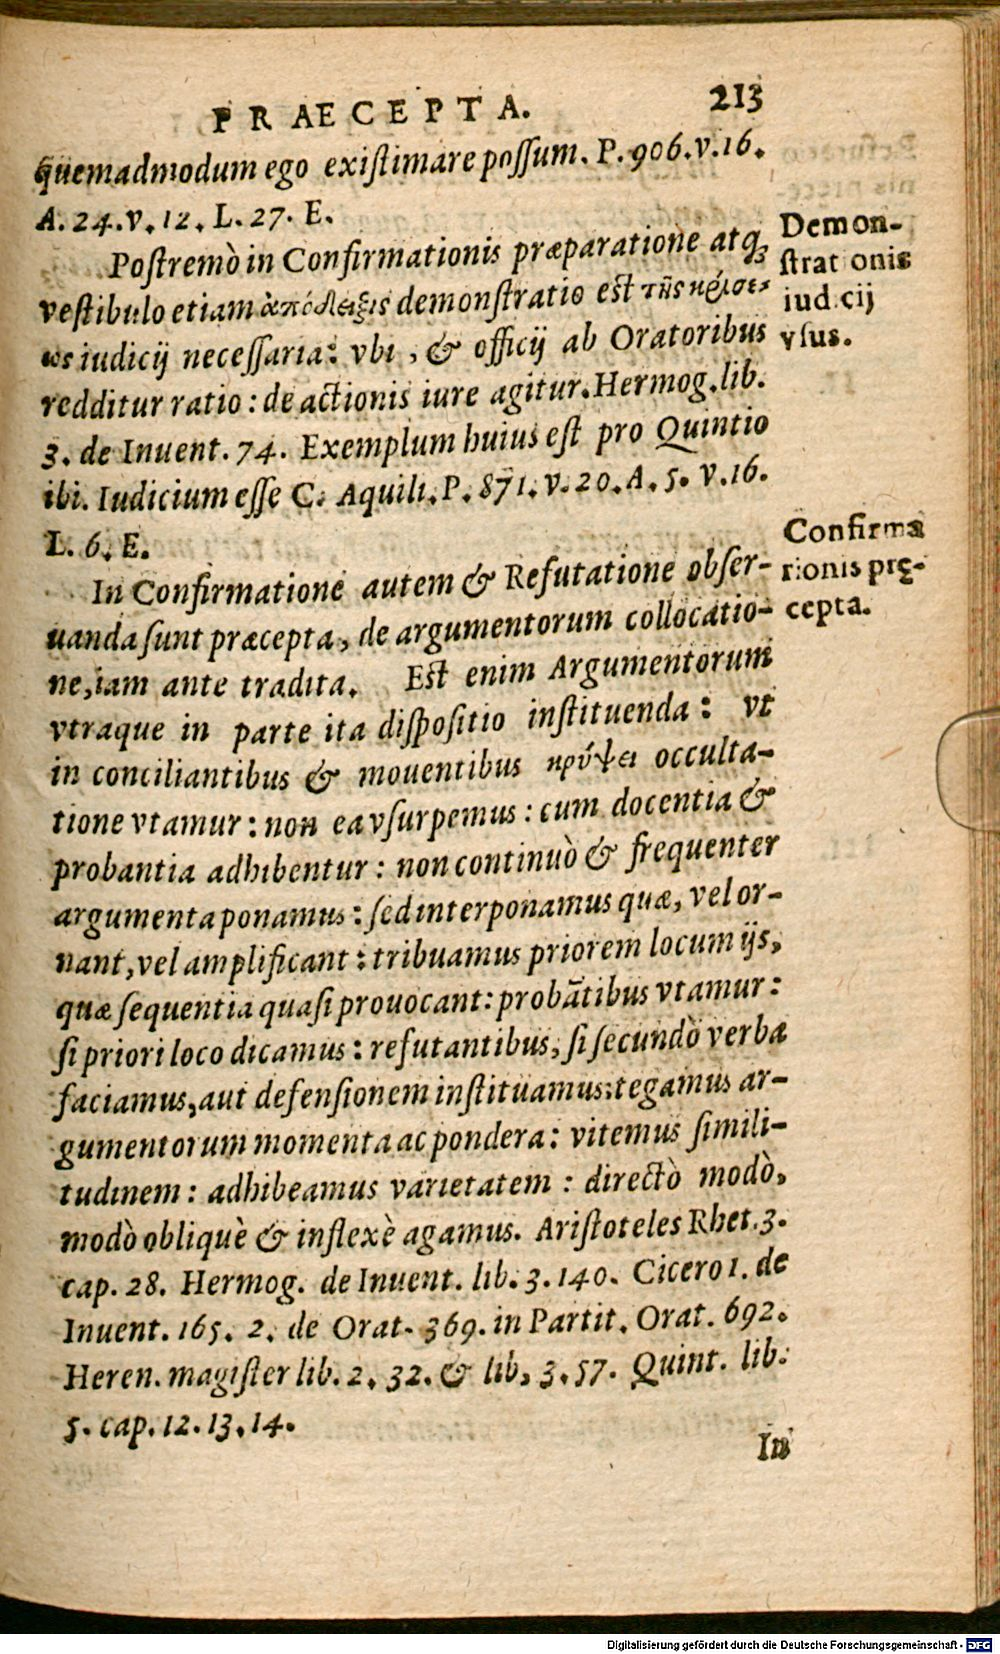 PRAECEPTA. 213
quemadmodum ego existimare possum. P. 906. v. 16.
A. 24. v. 12. L. 27. E.
Postremò in Confirmationis præparatione atq;
vestibulo etiam ἀπόδειξις demonstratio est τῆς κρίσε-
ως iudicij necessaria: vbi, & officij ab Oratoribus
redditur ratio: de actionis iure agitur. Hermog. lib.
3. de Inuent. 74. Exemplum huius est pro Quintio
ibi. Iudicium esse C. Aquili. P. 871. v. 20. A. 5. v. 16.
L. 6. E.
Demon-
strat onis
iud cij
vsus.
In Confirmatione autem & Refutatione obser-
uanda sunt præcepta, de argumentorum collocatio-
ne, iam ante tradita. Est enim Argumentorum
vtraque in parte ita dispositio instituenda: vt
in conciliantibus & mouentibus κρύψει occulta-
tione vtamur: non ea vsurpemus: cum docentia &
probantia adhibentur: non continuò & frequenter
argumenta ponamus: sed interponamus quæ, vel or-
nant, vel amplificant: tribuamus priorem locum ijs,
quæ sequentia quasi prouocant: probãtibus vtamur:
si priori loco dicamus: refutantibus, si secundò verba
faciamus, aut defensionem instituamus: tegamus ar-
gumentorum momenta ac pondera: vitemus simili-
tudinem: adhibeamus varietatem: directò modò,
modò obliquè & inflexè agamus. Aristoteles Rhet. 3.
cap. 28. Hermog. de Inuent. lib. 3. 140. Cicero 1. de
Inuent. 165. 2. de Orat. 369. in Partit. Orat. 692.
Heren. magister lib. 2. 32. & lib, 3. 57. Quint. lib.
5. cap. 12. 13. 14.
Confirma
tionis prę-
cepta.
In
Digitalisierung gefördert durch die Deutsche Forschungsgemeinschaft - DFG